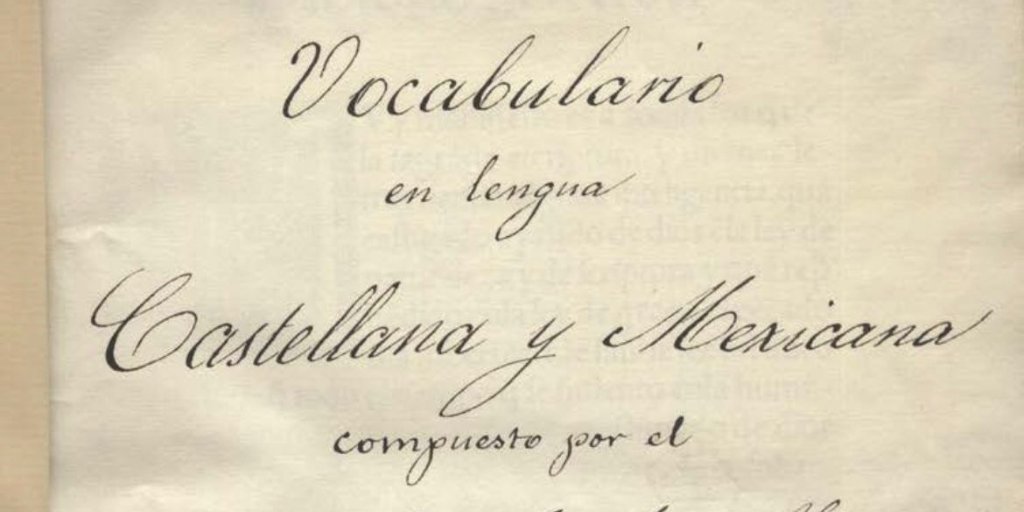 Vocabulario
en lengua
Castellana y Mexicana
compuesto por el